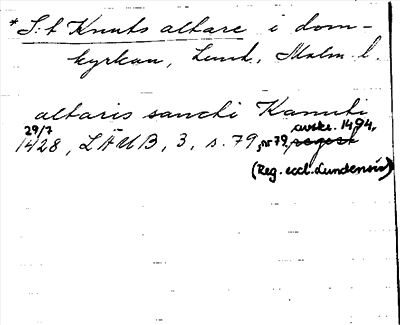 * S:t Knuts altare i dom-
kyrkan, Lund, Malm. l.
altaris sancti Kanuti
29/7 avskr. 1494,
1428, LÄUB, 3, s. 79, nr 79, regest
(Reg. eccl. Lundensis)